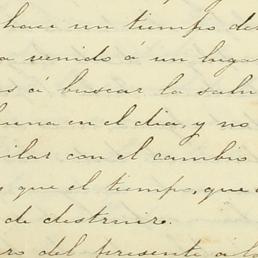 hace un tiempo de
a venido á un luga
s á buscar la salu
una en el dia, y no
ilar con el cambio
que el tiempo, que
de destruir.
ro del presente á la